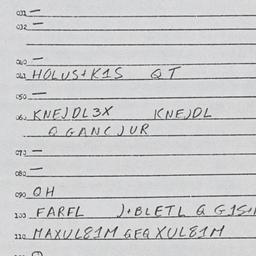 031 —
032 —
040 —
041 HOLUS+K1S QT
050 —
060 KNEJDL3X KNEJDL
Q GANCJUR
070 —
080 —
090 OH
100 FARFL J+BLETL Q G1S+
110 MAXUL81M GEQ XUL81M